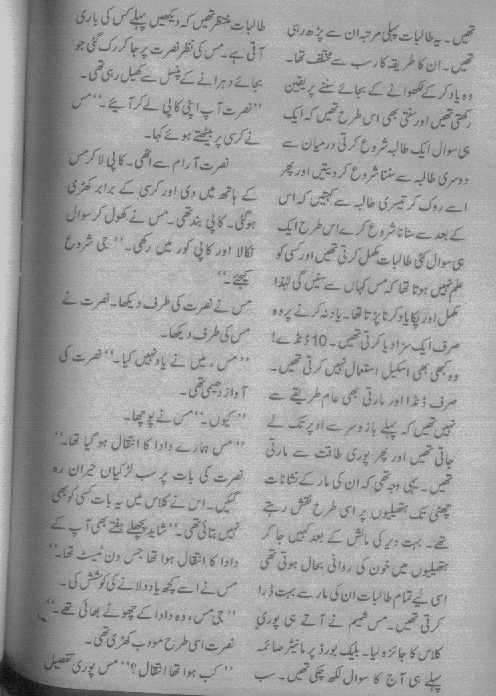 تھیں۔ یہ طالبات پہلی مرتبہ ان سے پڑھ رہی
تھیں۔ ان کا طریقہ کار سب سے مختلف تھا۔
وہ یاد کر کے لکھوانے کے بجائے سننے پر یقین
رکھتی تھیں اور سنتی بھی اس طرح تھیں کہ ایک
ہی سوال ایک طالبہ شروع کرتی درمیان سے
دوسری طالبہ سے سننا شروع کر دیتیں اور پھر
اسے روک کر تیسری طالبہ سے کہتیں کہ اس
کے بعد سے سنانا شروع کرے اس طرح ایک
ہی سوال کئی طالبات مکمل کرتی تھیں اور کسی کو
علم نہیں ہوتا تھا کہ مس کہاں سے سنیں گی لہٰذا
مکمل اور پکا یاد کرنا پڑتا تھا۔ یاد نہ کرنے پر وہ
صرف ایک سزا دیا کرتی تھیں۔ 10 ڈنڈے!
وہ کبھی بھی اسکیل استعمال نہیں کرتی تھیں۔
صرف ڈنڈا اور مارتی بھی عام طریقے سے
نہیں تھیں کہ پہلے بازو سر سے اوپر تک لے
جاتی تھیں اور پھر پوری طاقت سے مارتی
تھیں۔ یہی وجہ تھی کہ ان کی مار کے نشانات
چھٹی تک ہتھیلیوں پر اسی طرح نقش رہتے
تھے۔ بہت دیر کی مالش کے بعد کہیں جا کر
ہتھیلیوں میں خون کی روانی بحال ہوتی تھی
اسی لیے تمام طالبات ان کی مار سے بہت ڈرا
کرتی تھیں۔ مس شمیم نے آتے ہی پوری
کلاس کا جائزہ لیا۔ بلیک بورڈ پر مانیٹر صائمہ
پہلے ہی آج کا سوال لکھ چکی تھیں۔ سب
طالبات منتظر تھیں کہ دیکھیں پہلے کس کی باری
آتی ہے۔ مس کی نظر نصرت پر جا کر رک گئی جو
بجائے دہرانے کے پنسل سے کھیل رہی تھی۔
”نصرت آپ اپنی کاپی لے کر آیئے۔“ مس
نے کرسی پر بیٹھتے ہوئے کہا۔
نصرت آرام سے اٹھی۔ کاپی لا کر مس
کے ہاتھ میں دی اور کرسی کے برابر کھڑی
ہو گئی۔ کاپی بند تھی۔ مس نے کھول کر سوال
نکالا اور کاپی کور میں رکھی۔ ”جی شروع
کیجئے۔“
مس نے نصرت کی طرف دیکھا۔ نصرت نے
مس کی طرف دیکھا۔
”مس، میں نے یاد نہیں کیا۔“ نصرت کی
آواز دھیمی تھی۔
”کیوں۔“ مس نے پوچھا۔
”مس ہمارے دادا کا انتقال ہو گیا تھا۔“
نصرت کی بات پر سب لڑکیاں حیران رہ
گئیں۔ اس نے کلاس میں یہ بات کسی کو بھی
نہیں بتائی تھی۔ ”شاید پچھلے ہفتے بھی آپ کے
دادا کا انتقال ہوا تھا جس دن ٹیسٹ تھا۔“
مس نے اسے کچھ یاد دلانے کی کوشش کی۔
”جی مس، وہ دادا کے چھوٹے بھائی تھے۔“
نصرت اسی طرح مودب کھڑی تھی۔
”کب ہوا تھا انتقال؟“ مس پوری تفصیل